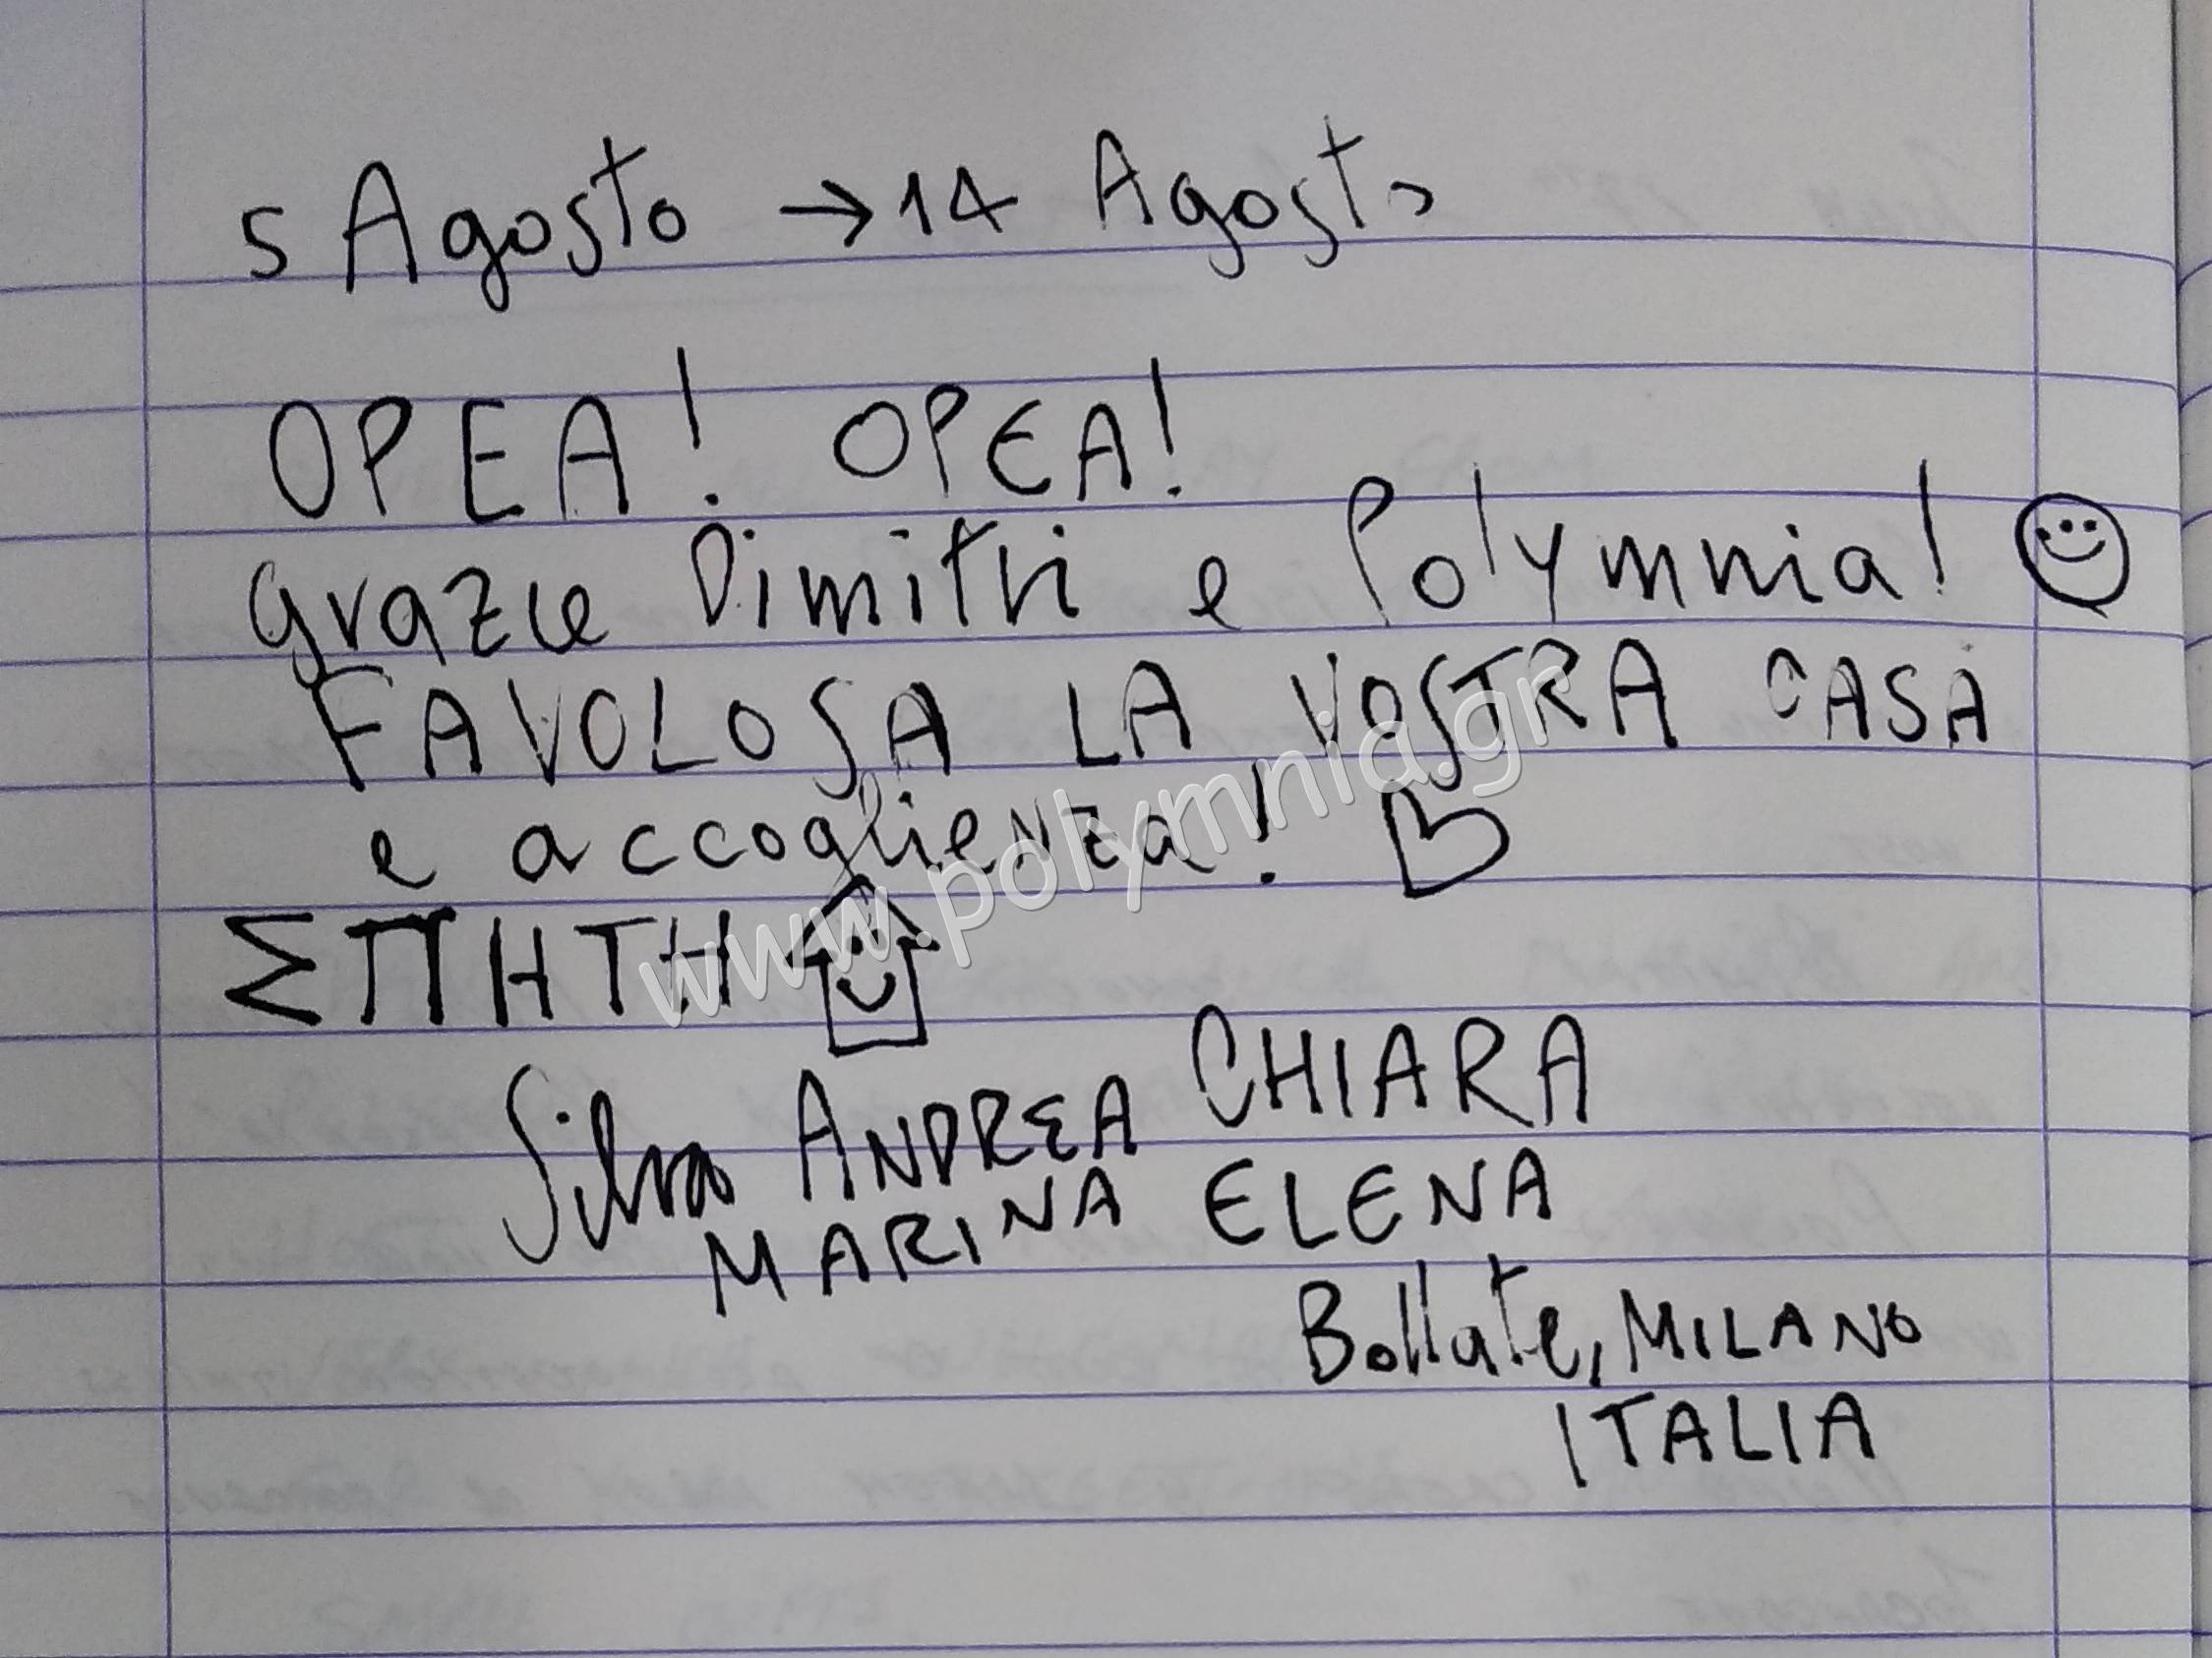 5 Agosto → 14 Agosto
OPEA! OPEA!
grazie Dimitri e Polymnia!
FAVOLOSA LA VOSTRA CASA
e accoglienza!
ΣΠΗΤΗ
Silvia ANDREA CHIARA
MARINA ELENA
Bollate, MILANO
ITALIA
www.polymnia.gr